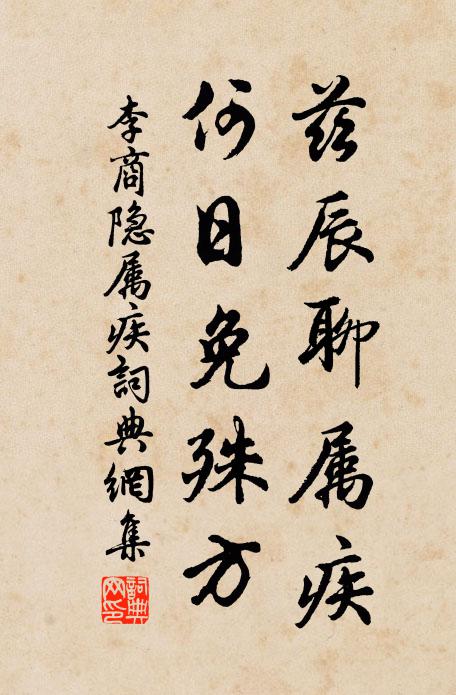 兹辰聊属疾
何日免殊方
李商隐属疾詞典網集
詞典网印